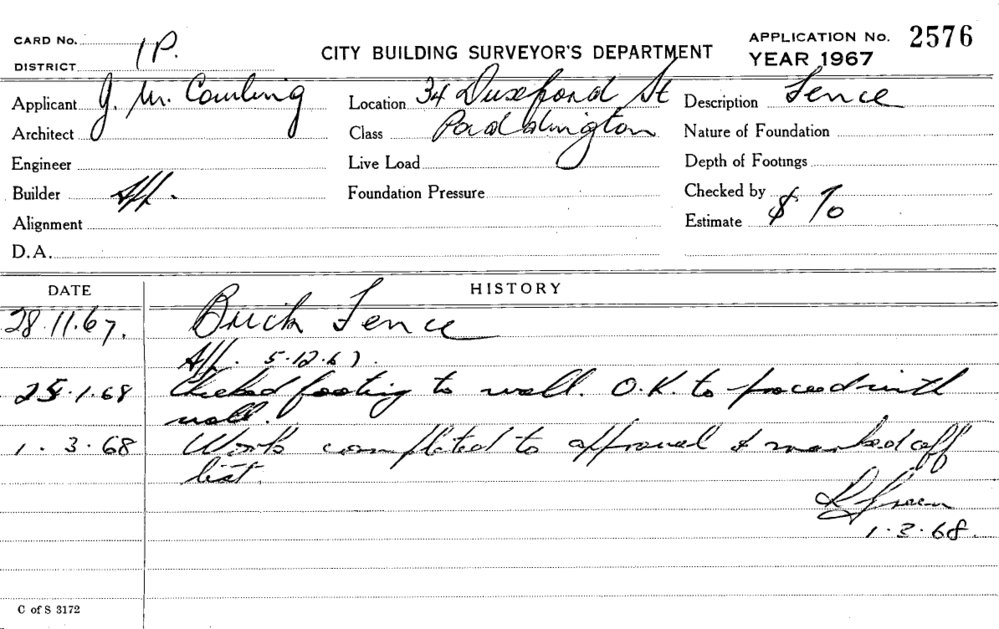 CARD No. 1P.
DISTRICT
CITY BUILDING SURVEYOR'S DEPARTMENT
APPLICATION No. 2576
YEAR 1967
Applicant J. M. Cowling
Location 34 Duxford St
Description Fence
Architect
Class Paddington
Nature of Foundation
Engineer
Live Load
Depth of Footings
Builder App.
Foundation Pressure
Checked by
Alignment
Estimate $70
D.A.
DATE
HISTORY
28.11.67. Brick Fence
App. 5.12.67.
25.1.68 Checked footing to wall. O.K. to proceed with
wall.
1.3.68 Work completed to approval & marked off
list.
1.3.68.
C of S 3172